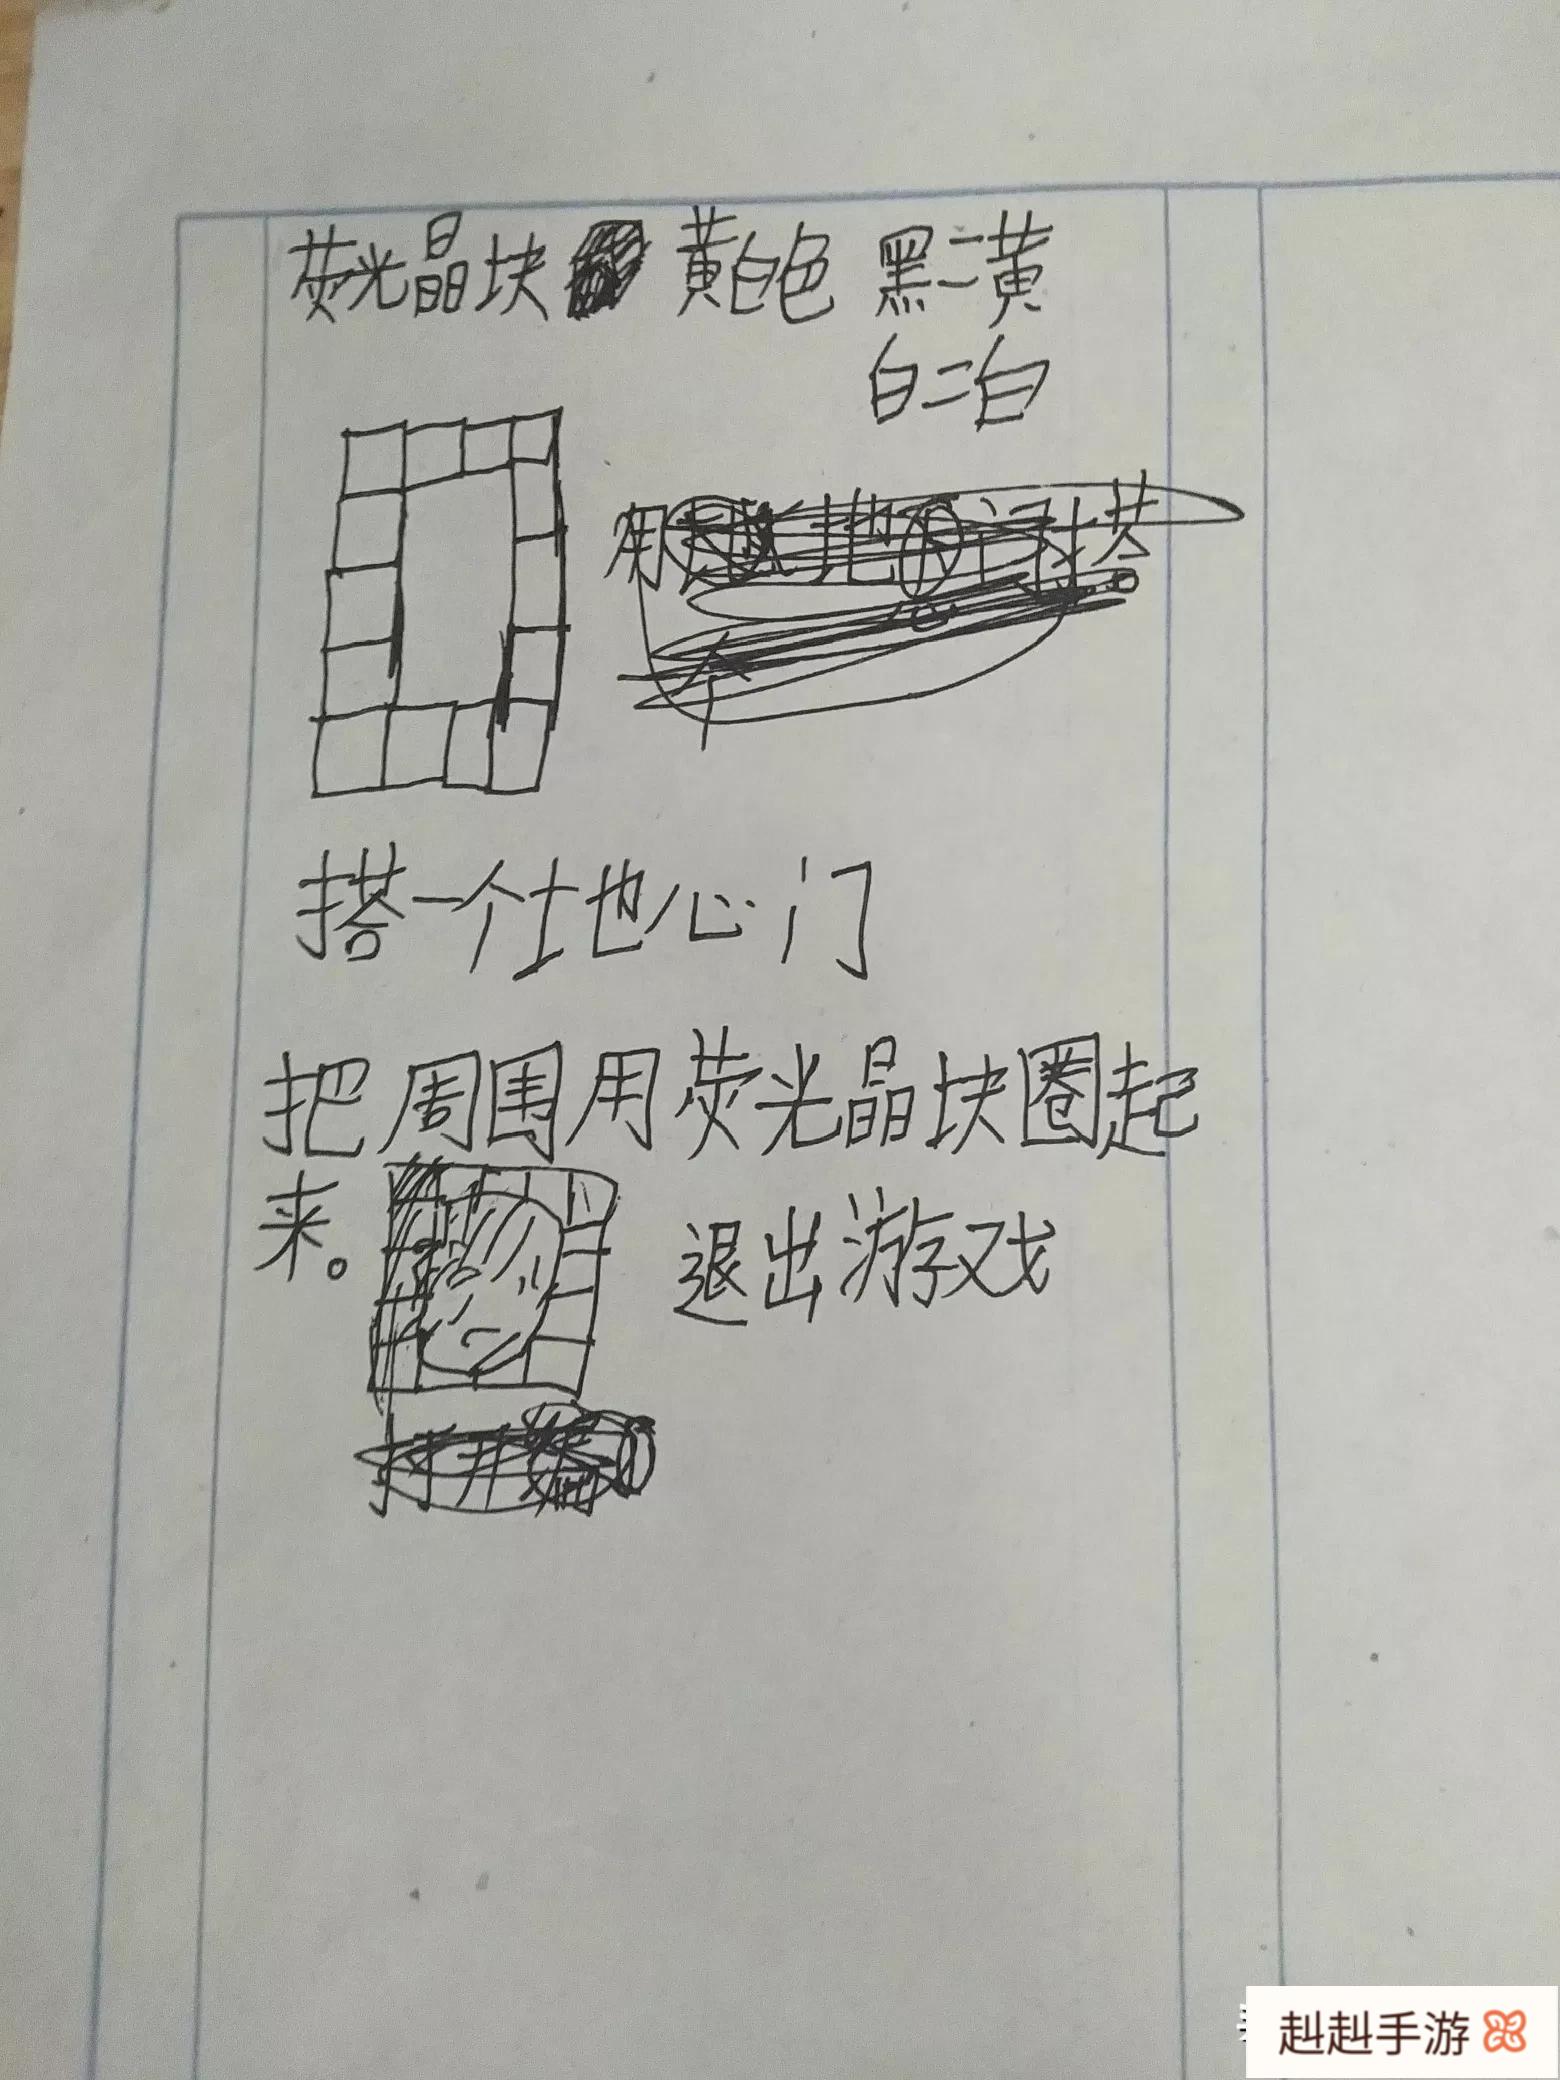 荧光晶块 黄白色 黑=黄
白=白
用 地 门搭
个
搭一个地心门
把周围用荧光晶块圈起
来。 退出游戏
打开
赳赳手游